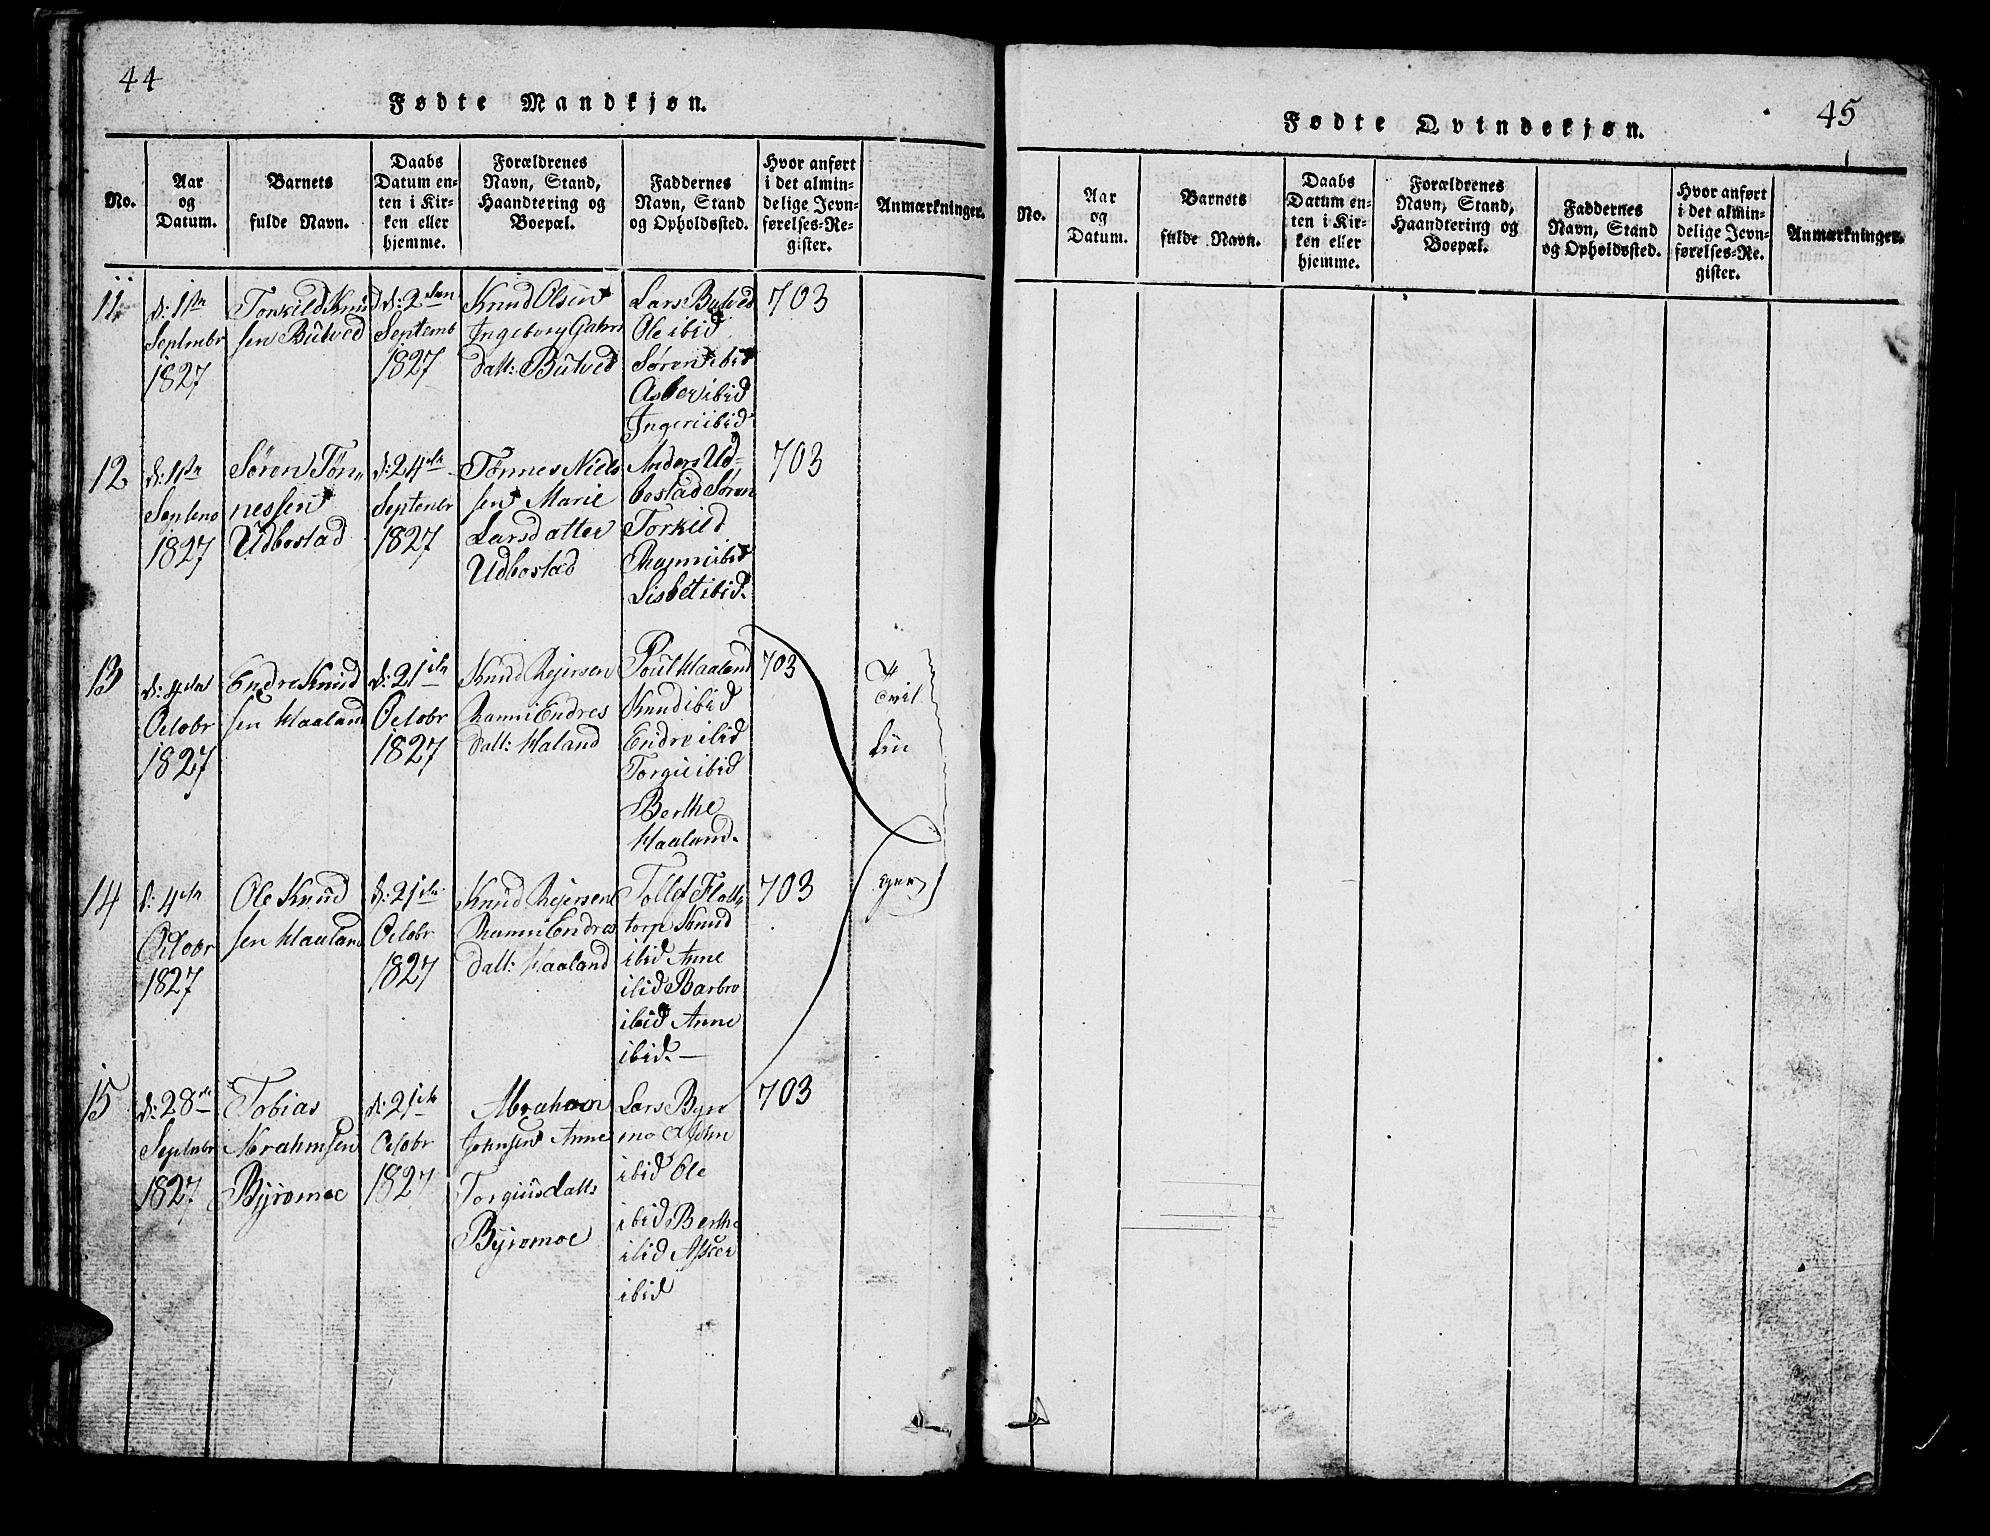 44
Fødte Mandkjøn.
No.
Aar
og
Datum.
Barnets
fulde Navn.
Daabs
Datum en-
ten i Kir-
ken eller
hjemme.
Forældrenes
Navn, Stand,
Haandtering og
Boepæl.
Faddernes
Navn, Stand
og Opholdssted.
Hvor anført
i det almin-
delige Jevn-
førelses-Re-
gister.
Anmærkninger.
11
d: 1ste
Septembr
1827
Torkild Knud
sen Butved
d: 2den
Septemb
1827
Knud Olsen
Ingeborg
datt: Butved
Lars Butved
Ole ibid
Søren ibid
ibid
Ingeri ibid
703
12
d: 1ste
Septemb
1827
Søren Tøn-
nessen
Udbostad
d: 24de
Septembr
1827
Tønnes Niels
sen Marie
Larsdatter
Udbostad
Anders Ud-
bostad Søren
Torkild
Ramni ibid
Lisbet ibid.
703
13
d: 4de
Octobr
1827
Endre Knud
sen Haaland
d: 21de
Octobr
1827
Knud Rejersen
Ramni Endres
datt: Haland
Poul Haaland
Knud ibid
Endre ibid
Torgu ibid
Berthe
Haaland.
703
Tvil
lin
14
d: 4de
Octobr
1827
Ole Knud
sen Haaland
d: 21de
Octobr
1827
Knud Rejersen
Ramni Endres
datt: Haaland
Tollef Flot-
torp Knud
ibid Anne
ibid Barbro
ibid Anne
ibid.
703
ger
15
d: 28de
Septmbr
1827
Tobias
Abrahmsen
Byromoe
d: 21de
Octobr
1827
Abraham
Johnsen Anne
Torgiusdatt
Byromoe
Lars Byro
mo
ibid Ole
ibid Berthe
ibid Asper
ibid
703
45
Fødte Qvindekjøn.
No.
Aar
og
Datum.
Barnets
fulde Navn.
Daabs
Datum en-
ten i Kir-
ken eller
hjemme.
Forældrenes
Navn, Stand,
Haandtering og
Boepæl.
Faddernes
Navn, Stand
og Opholdssted.
Hvor anført
i det almin-
delige Jevn-
førelses-Re-
gister.
Anmærkninger.